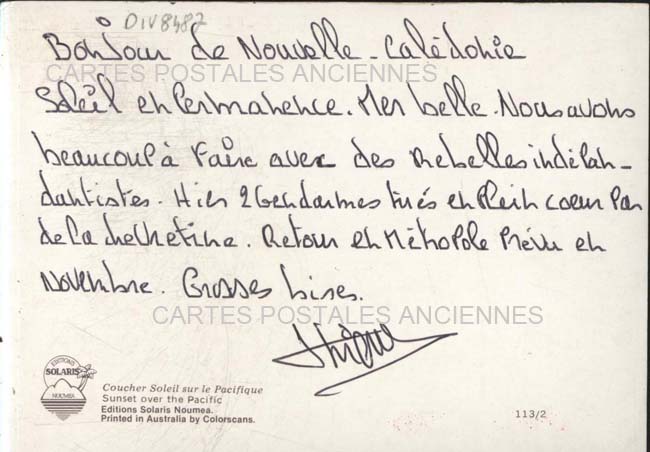 DIV8487
Bonjour de Nouvelle-Calédonie
CARTES POSTALES ANCIENNES
Soleil en Permanence. Mer belle. Nous avons
beaucoup à faire avec des Rebelles indépen-
dantistes. Hier 2 Gendarmes tués en plein coeur par
de la chevrotine. Retour en Métropole Prévu en
Novembre. Grosses bises.
CARTES POSTALES ANCIENNES
EDITIONS
SOLARIS
NOUMEA
Coucher Soleil sur le Pacifique
Sunset over the Pacific
Editions Solaris Noumea.
Printed in Australia by Colorscans.
113/2